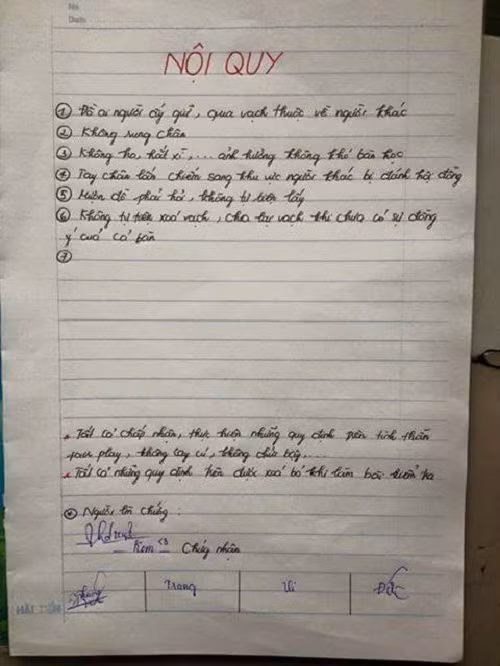 No
Date
NỘI QUY
① Đồ ai người ấy giữ, qua vạch thuộc về người khác
② Không rung chân
③ Không ho, hắt xì, ... ảnh hưởng không khí bàn học
④ Tay chân lấn chiếm sang khu vực người khác bị đánh hội đồng
⑤ Mượn đồ phải hỏi, không tự tiện lấy
⑥ Không tự tiện xoá vạch, che lấp vạch khi chưa có sự đồng
ý của cả bàn
⑦
Tất cả chấp nhận, thực hiện những quy định trên tinh thần
fair play, không cay cú, không chửi bậy, ...
Tất cả những quy định trên được xoá bỏ khi làm bài kiểm tra
Người làm chứng:
Kem <3 Chứng nhận
Trang Vi Đức
HẢI TIẾN